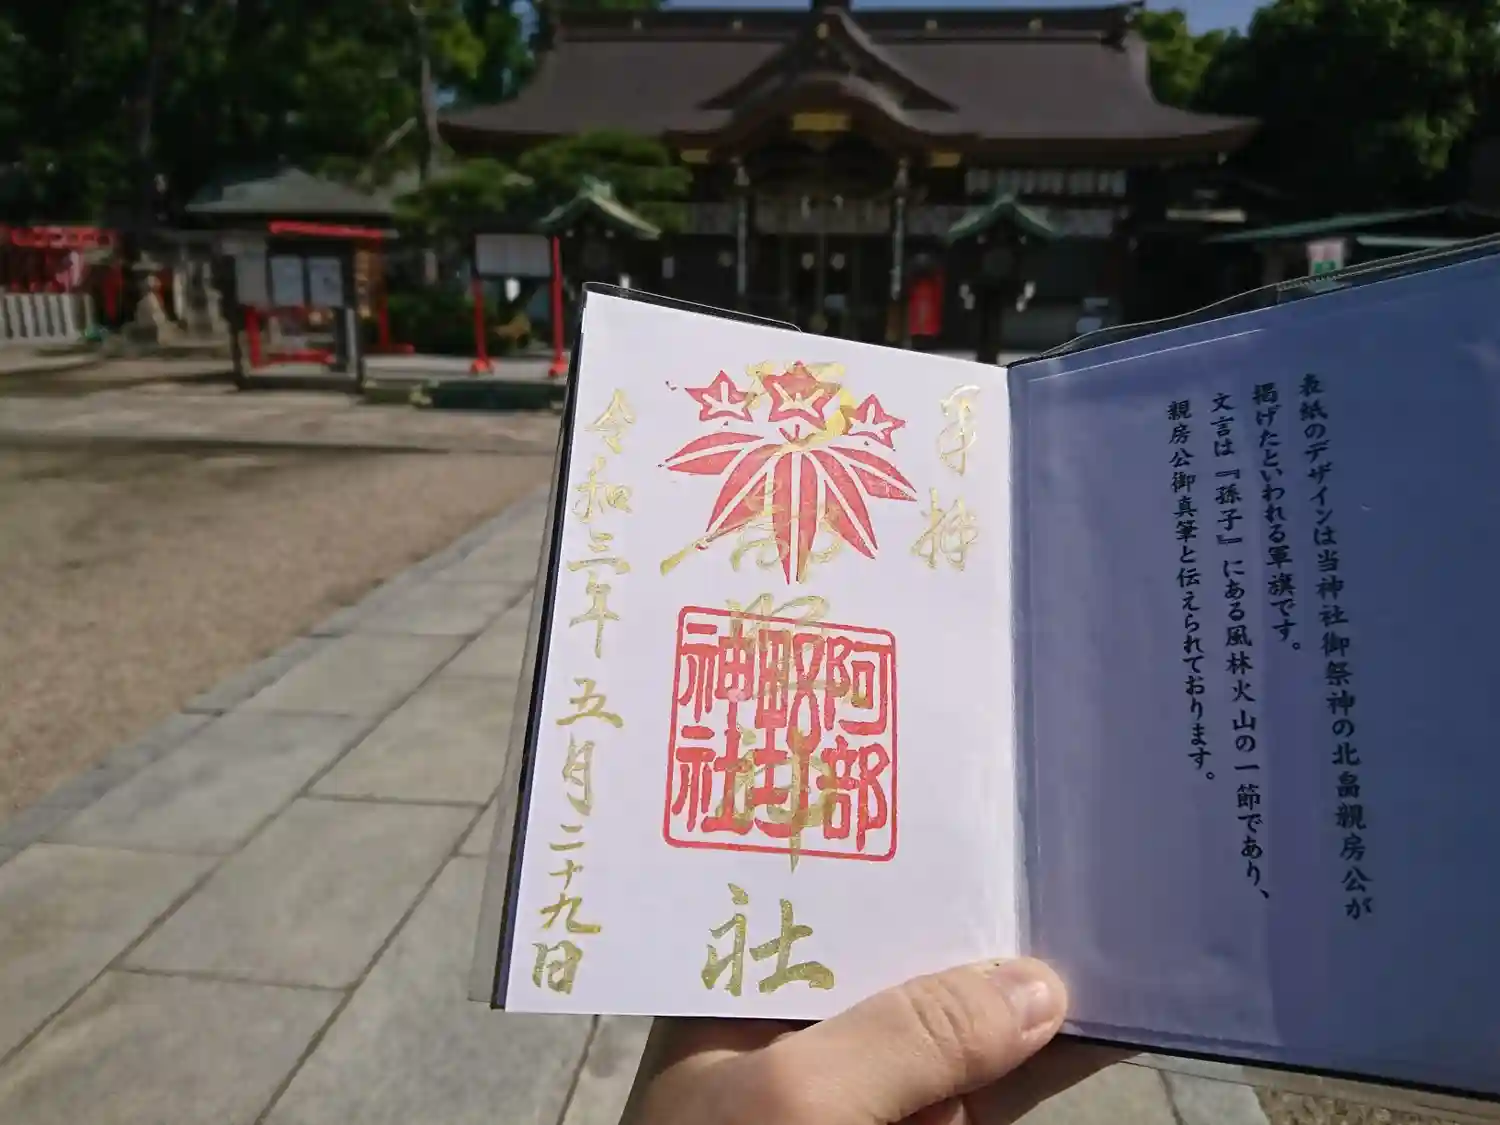 表紙のデザインは当神社御祭神の北畠親房公が
掲げたといわれる軍旗です。
文言は『孫子』にある風林火山の一節であり、
親房公御真筆と伝えられております。
奉拝
阿部野神社
阿部
野
神社
令和三年五月二十九日